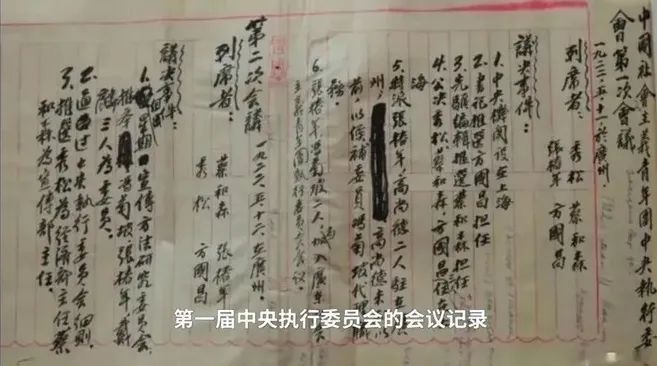 中國社會主義青年團中央執行委
員會第一次會議
一九二二.五.十一於廣州.
列席者:
秀松 蔡和森
張椿年 方國昌
議決事件:
1.中央機関設在上海
2.書記推選方國昌担任
3.先驅編輯推選蔡和森担任
4.公决秀松、蔡和森、方國昌住在上
海
5.特派張椿年、高尚德二人駐在
州 高尚德未
前,以候補委員馮菊坡代理
務.
6.張椿年馮菊坡二人加入廣東
第二次會議 一九二二.五.十二在廣州.
列席者:
蔡和森 張椿年
秀松 方國昌
議决事件:
馮菊坡張椿年、戴
三人為委員.
2.通过中央執行委員会細則.
3.推選秀松為經濟部主任蔡
和森為宣傳部主任.
第一届中央执行委员会的会议记录